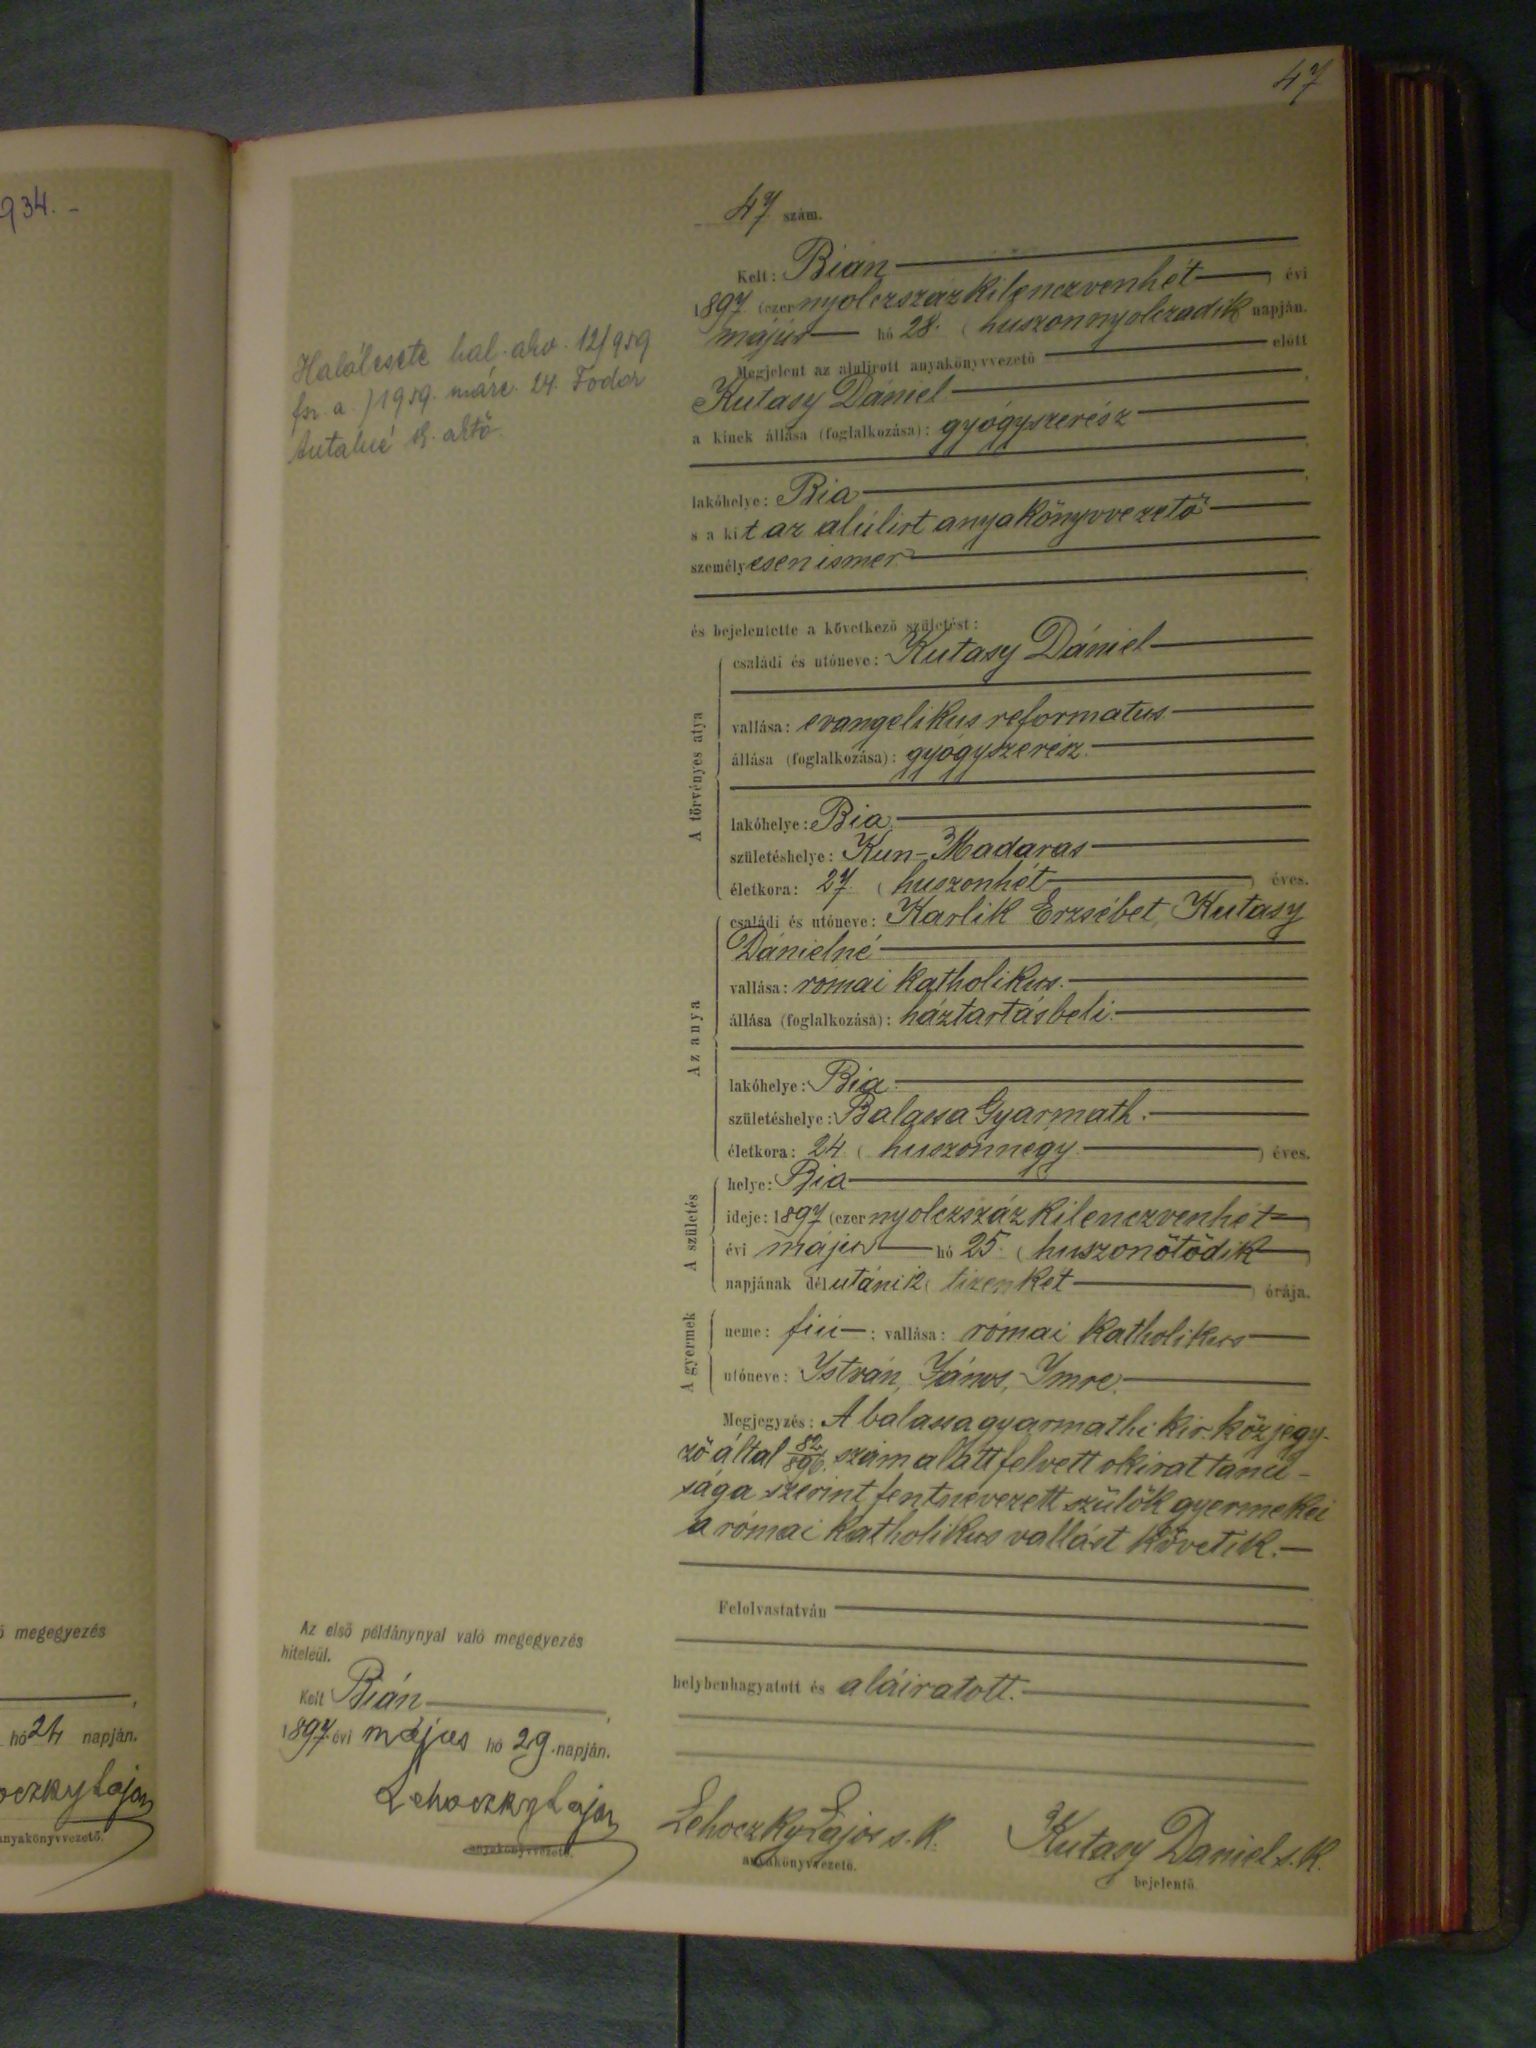 934. -
ó megegyezés
hó 24 napján.
oczky Lajos
anyakönyvvezető.
47
47 szám.
Kelt: Bián
1897 (ezernyolczszázkilenczvenhét) évi
május hó 28. (huszonnyolczadik napján.
Megjelent az alulirott anyakönyvvezető előtt
Kutasy Dániel
a kinek állása (foglalkozása): gyógyszerész
lakóhelye: Bia
s a kit az alúlirt anyakönyvvezető
személyesen ismer
és bejelentette a következő születést:
A törvényes atya
családi és utóneve: Kutasy Dániel
vallása: evangelikus reformatus
állása (foglalkozása): gyógyszerész.
lakóhelye: Bia
születéshelye: Kun-Madaras
életkora: 27. (huszonhét) éves.
Az anya
családi és utóneve: Karlik Erzsébet, Kutasy
Dánielné
vallása: római katholikus.
állása (foglalkozása): háztartásbeli.
lakóhelye: Bia
születéshelye: Balassa Gyarmath.
életkora: 24 (huszonnégy) éves.
A születés
helye: Bia
ideje: 1897 (ezernyolczszázkilenczvenhét)
évi május hó 25. (huszonötödik)
napjának délutáni 12 (tizenkét) órája.
A gyermek
neme: fiú; vallása: római katholikus
utóneve: István, János, Imre.
Megjegyzés: A balassagyarmathi kir. közjegy-
ző által 82/896. szám alatt felvett okirat tanu-
sága szerint fentnevezett szülők gyermekei
a római katholikus vallást követik.-
Felolvastatván
helybenhagyatott és aláiratott.
Lehoczky Lajos s. k.
anyakönyvvezető.
Kutasy Daniel s. k.
bejelentő
Halálesete hal. akv. 12/959
fsz. a. ) 1959. márc. 24. Fodor
Antalné s.k. aktő.
Az első példánynyal való megegyezés
hiteleül.
Kelt Bián,
1897. évi május hó 29. napján.
Lehoczky Lajos
anyakönyvvezető.